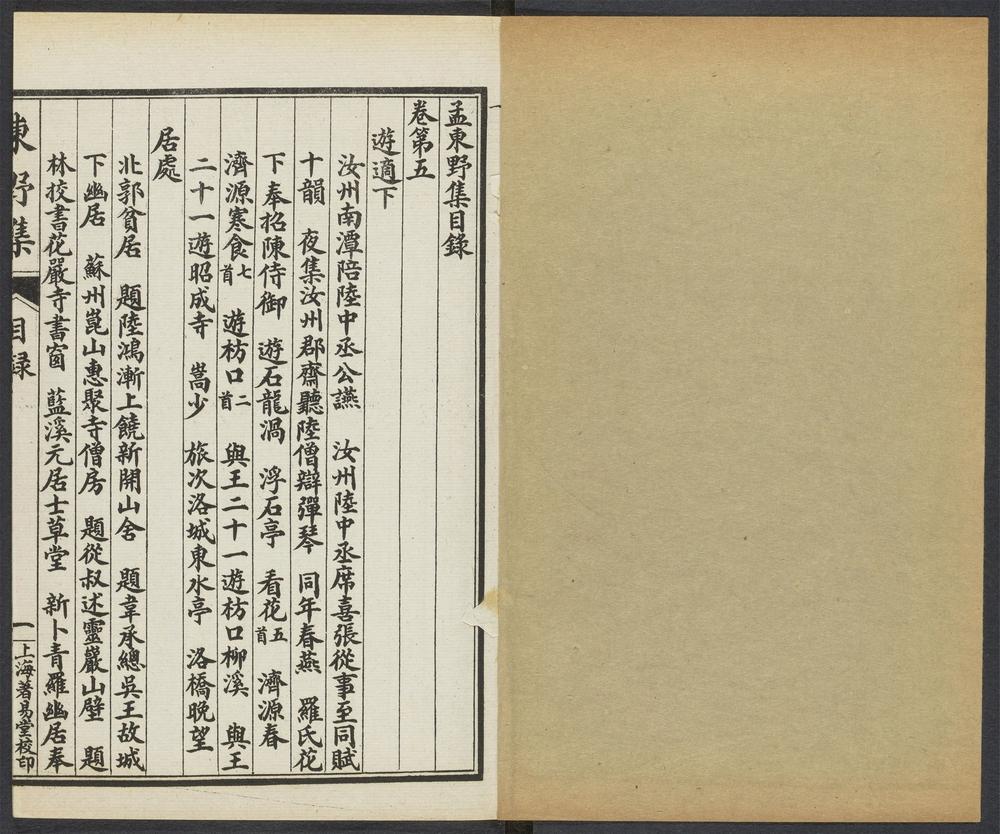 孟東野集目錄
卷第五
遊適下
汝州南潭陪陸中丞公讌　汝州陸中丞席喜張從事至同賦
十韻　夜集汝州郡齋聽陸僧辯彈琴　同年春燕　羅氏花
下奉招陳侍御　遊石龍渦　浮石亭　看花五首　濟源春
濟源寒食七首　遊枋口二首　與王二十一遊枋口柳溪　與王
二十一遊昭成寺　嵩少　旅次洛城東水亭　洛橋晚望
居處
北郭貧居　題陸鴻漸上饒新開山舍　題韋承總吳王故城
下幽居　蘇州崑山惠聚寺僧房　題從叔述靈巖山壁　題
林挍書花嚴寺書窗　藍溪元居士草堂　新卜青羅幽居奉
東野集　目録　一　上海著易堂校印